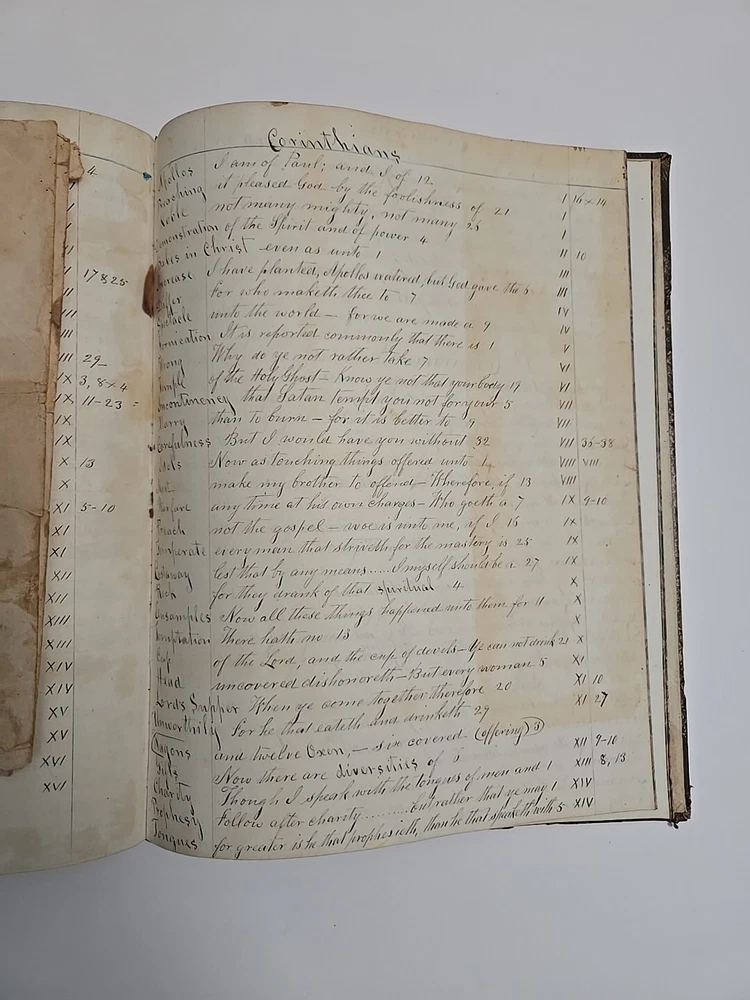 4
17 & 25
III 29
IX 3, 8 x 4
IX 11-23 =
IX
IX
X 13
X
XI 5-10
XI
XI
XII
XII
XIII
XIII
XIV
XIV
XV
XV
XVI
XVI
Corinthians
Apollos I am of Paul; and I of 12
Preaching it pleased God by the foolishness of 21 I 16 x 14
Noble not many mighty, not many 26 I
Demonstration of the Spirit and of power 4 I
Babes in Christ even as unto 1 II 10
Increase I have planted, Apollos watered, but God gave the 6 III
Differ For who maketh thee to 7 III
Spectacle unto the world – for we are made a 9 IV
Fornication It is reported commonly that there is 1 IV
Wrong Why do ye not rather take 7 V
Temple of the Holy Ghost – Know ye not that your body 19 VI
Incontinency that Satan tempt you not for your 5 VI
Marry than to burn – for it is better to 9 VII
Carefulness But I would have you without 32 VII
Idols Now as touching things offered unto 1 VII 35-38
make my brother to offend – Wherefore, if 13 VIII VIII
Warfare any time at his own charges – Who goeth a 7 VIII
Preach not the gospel – woe is unto me, if I 16 IX 9-10
Temperate every man that striveth for the mastery is 25 IX
Castaway lest that by any means..... I myself should be a 27 IX
Rock for they drank of that spiritual 4 IX
Ensamples Now all these things happened unto them for 11 X
Temptation There hath no 13 X
Cup of the Lord, and the cup of devels – Ye can not drink 21 X
Head uncovered dishonoreth – But every woman 5 X
Lords Supper When ye come together therefore 20 XI
Unworthily For he that eateth and drinketh 29 XI 10
Wagons and twelve Oxen, – six covered (offering) 3 XI 27
Gifts Now there are diversities of
Charity Though I speak with the tongues of men and 1 XII 9-10
Prophesy Follow after charity.......... but rather that ye may 1 XIII 8, 13
Tongues for greater is he that prophesieth, than he that speaketh with 5 XIV
XIV